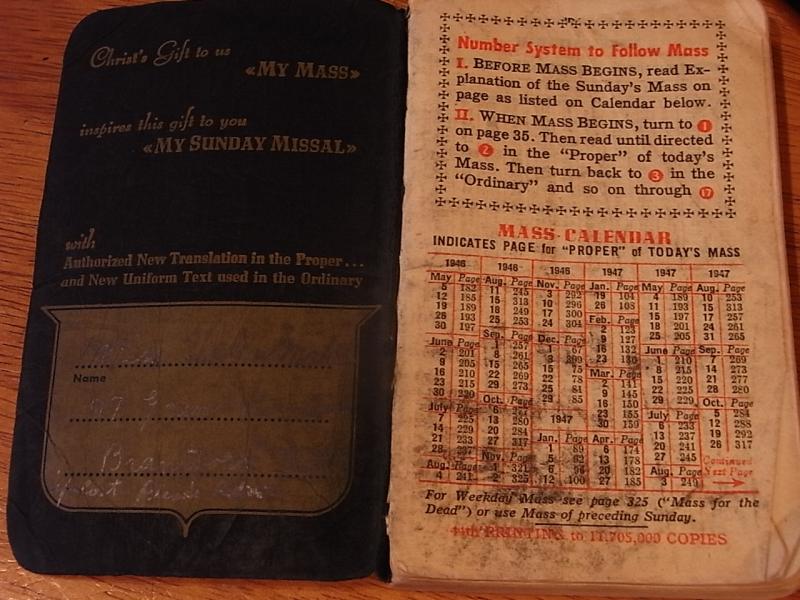 Christ's Gift to us
«MY MASS»
inspires this gift to you
«MY SUNDAY MISSAL»
with
Authorized New Translation in the Proper...
and New Uniform Text used in the Ordinary
Name
Number System to Follow Mass
I. BEFORE MASS BEGINS, read Ex-
planation of the Sunday's Mass on
page as listed on Calendar below.
II. WHEN MASS BEGINS, turn to 1
on page 35. Then read until directed
to 2 in the "Proper" of today's
Mass. Then turn back to 3 in the
"Ordinary" and so on through 17
MASS-CALENDAR
INDICATES PAGE for "PROPER" of TODAY'S MASS
1946 1946 1946 1947 1947 1947
May Page Aug. Page Nov. Page Jan. Page May Page Aug. Page
5 182 11 245 3 292 19 104 4 189 10 253
12 185 15 313 10 296 26 108 11 193 15 313
19 189 18 249 17 300 Feb. Page 15 197 17 257
26 193 25 253 24 304 2 123 18 201 24 261
30 197 Sept. Page Dec. Page 9 127 25 205 31 265
June Page 1 257 1 67 16 132 June Page Sep. Page
2 201 8 261 23 1 210 7 269
9 205 15 265 15 75 Mar. Page 8 215 14 273
16 210 22 269 22 78 2 141 15 220 21 277
23 215 29 273 25 81 9 145 22 225 28 280
30 Oct. Page 29 85 16 150 29 229 Oct. Page
July Page 6 1947 23 155 July Page 5 284
7 225 13 280 30 159 6 233 12 288
14 229 20 284 Jan. Page Apr. Page 13 237 19 292
21 233 27 317 1 89 6 174 20 241 26 317
28 237 Nov. Page 5 62 13 178 27 245 Continued
Aug. Page 1 321 6 20 182 Aug. Page Next Page
4 241 2 325 12 100 27 185 3 249
For Weekday Mass see page 325 ("Mass for the
Dead") or use Mass of preceding Sunday.
PRINTING to 11,705,000 COPIES